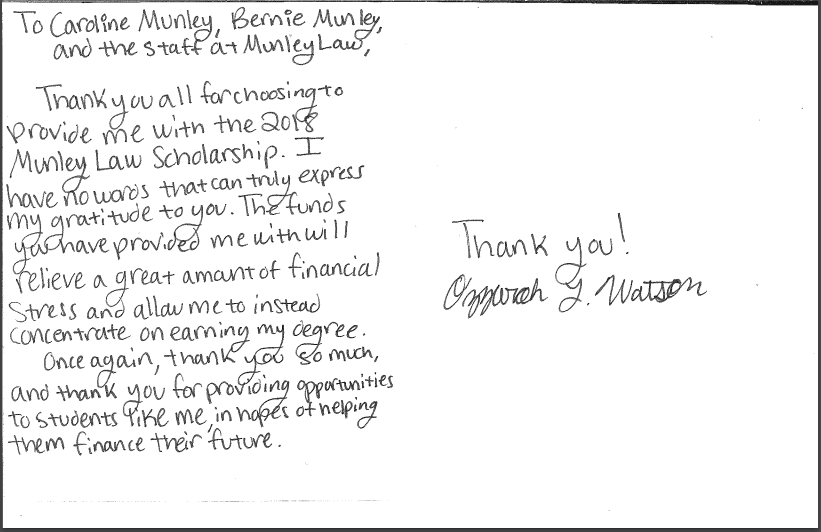 To Caroline Munley, Bernie Munley,
and the staff at Munley Law,
Thank you all for choosing to
provide me with the 2018
Munley Law Scholarship. I
have no words that can truly express
my gratitude to you. The funds
you have provided me with will
relieve a great amount of financial
stress and allow me to instead
concentrate on earning my degree.
Once again, thank you so much,
and thank you for providing opportunities
to students like me, in hopes of helping
them finance their future.
Thank you!
Y. Watson